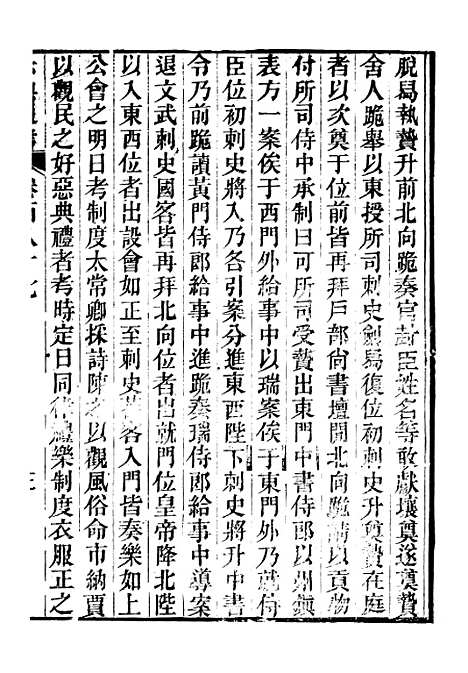 脫舄執贄升前北向跪奏官封臣姓名等敢獻壤奠遂奠贄
舍人跪舉以東授所司刺史劍舄復位初刺史升奠贄在庭
者以次奠于位前皆再拜戶部尚書壇間北向跪請以貢物
付所司侍中承制曰可所司受贄出東門中書侍郎以州鎮
表方一案俟于西門外給事中以瑞案俟于東門外乃就侍
臣位初刺史將入乃各引案分進東西陛下刺史將升中書
令乃前跪讀黃門侍郎給事中進跪奏瑞侍郎給事中導案
退文武刺史國客皆再拜北向位者出就門位皇帝降北陛
以入東西位者出設會如正至刺史客入門皆奏樂如上
公會之明日考制度太常卿採詩陳之以觀風俗命市納賈
以觀民之好惡典禮者考時定日同律禮樂制度衣服正之
卷百八十九
三